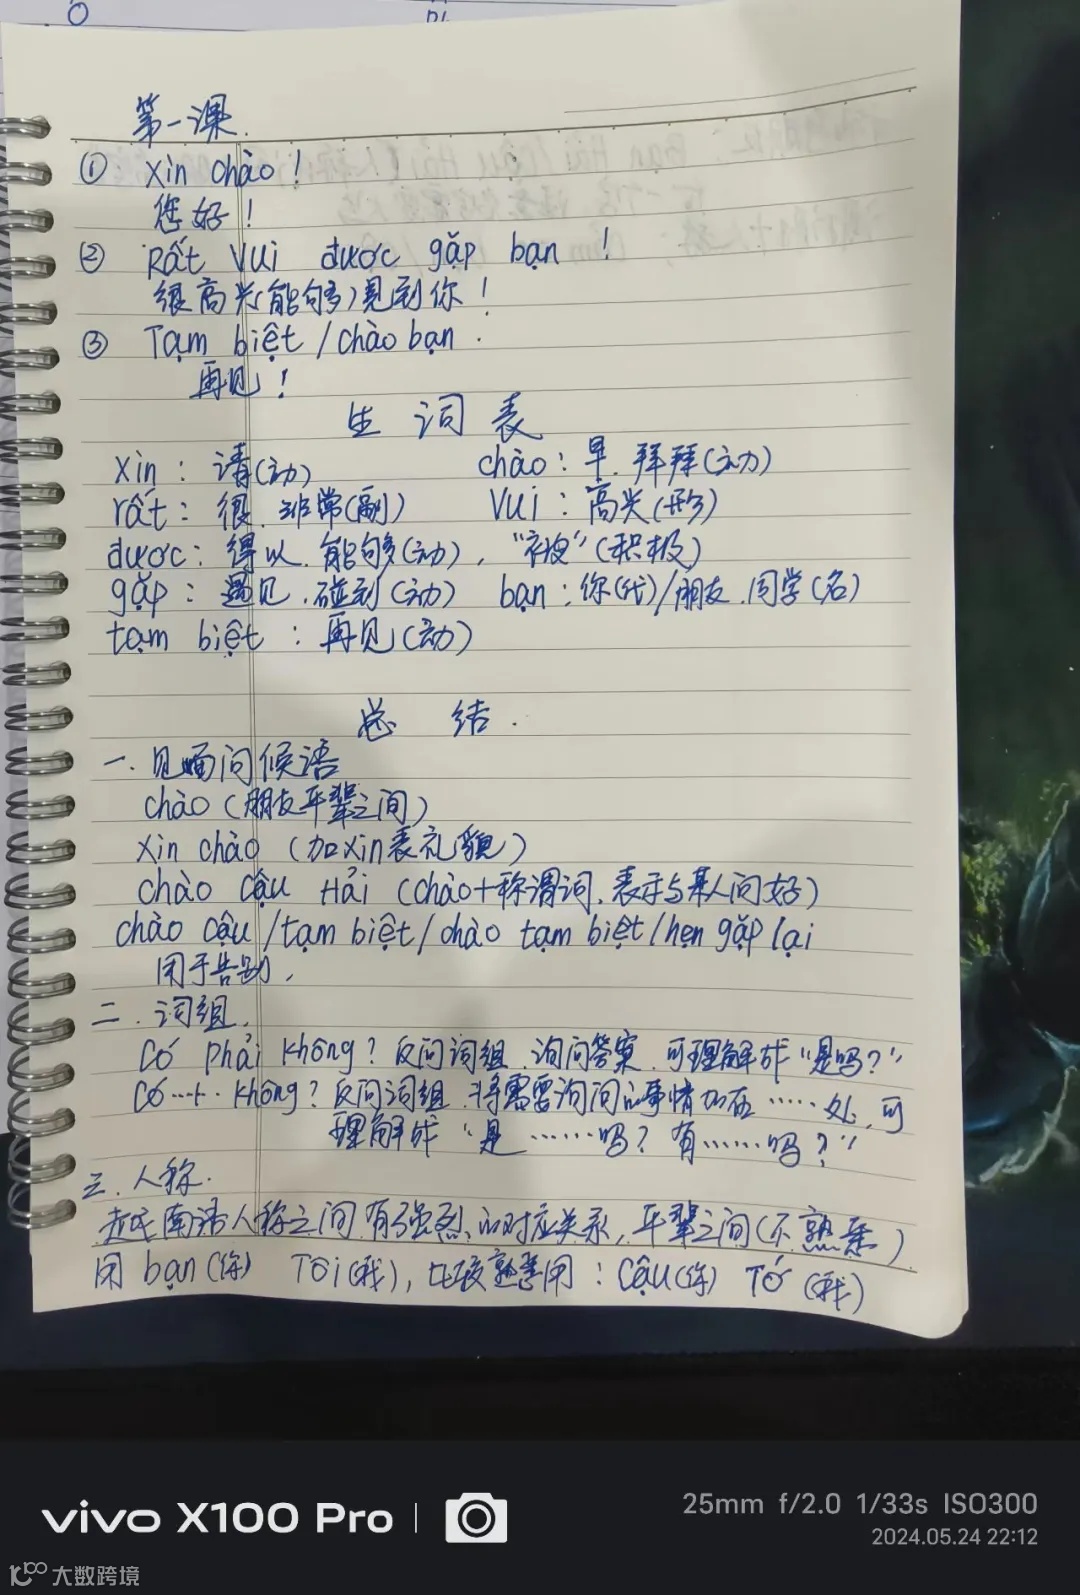 第一课.
① xin chào!
您好!
② Rất vui được gặp bạn !
很高兴(能够)见到你!
③ Tạm biệt/chào bạn.
再见!
生 词 表
xin: 请(动) chào: 早. 拜拜(动)
rất: 很. 非常(副) vui: 高兴(形)
được: 得以. 能够(动), "被"(积极)
gặp: 遇见. 碰到(动) bạn: 你(代)/朋友. 同学(名)
tạm biệt : 再见(动)
总 结.
一. 见面问候语
chào (朋友平辈之间)
xin chào (加xin表礼貌)
chào cậu Hải (chào+称谓词, 表示与某人问好)
chào cậu/tạm biệt/chào tạm biệt/hẹn gặp lại
用于告别.
二. 词组.
Có phải không? 反问词组. 询问答案. 可理解成"是吗?"
Có……không? 反问词组. 将需要询问的事情加在……处, 可
理解成"是……吗? 有……吗?"
三. 人称.
越南语人称之间有强烈的对应关系, 平辈之间(不熟悉)
用 bạn(你) Tôi(我), 比较熟悉用: Cậu(你) Tớ (我)
vivo X100 Pro
25mm f/2.0 1/33s ISO300
2024.05.24 22:12
大数跨境